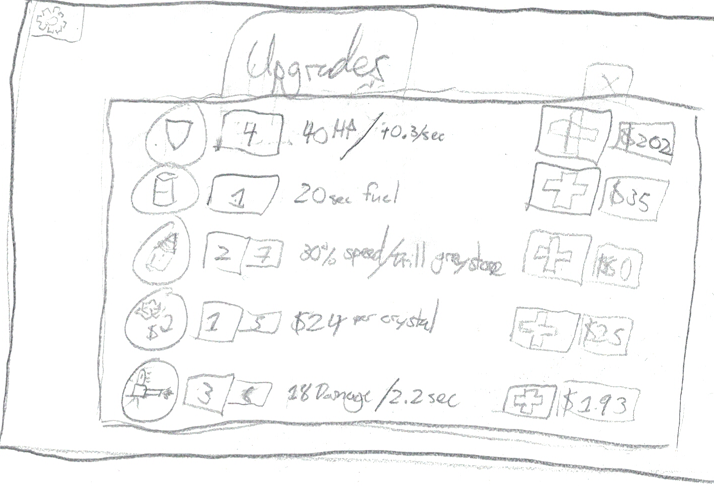 Upgrades
X
4 40 HP/+0.3/sec $202
1 20 sec fuel $35
2 7 30% speed/drill greystone $50
$2 1 5 $24 per crystal $25
3 18 Damage/2.2 sec $193